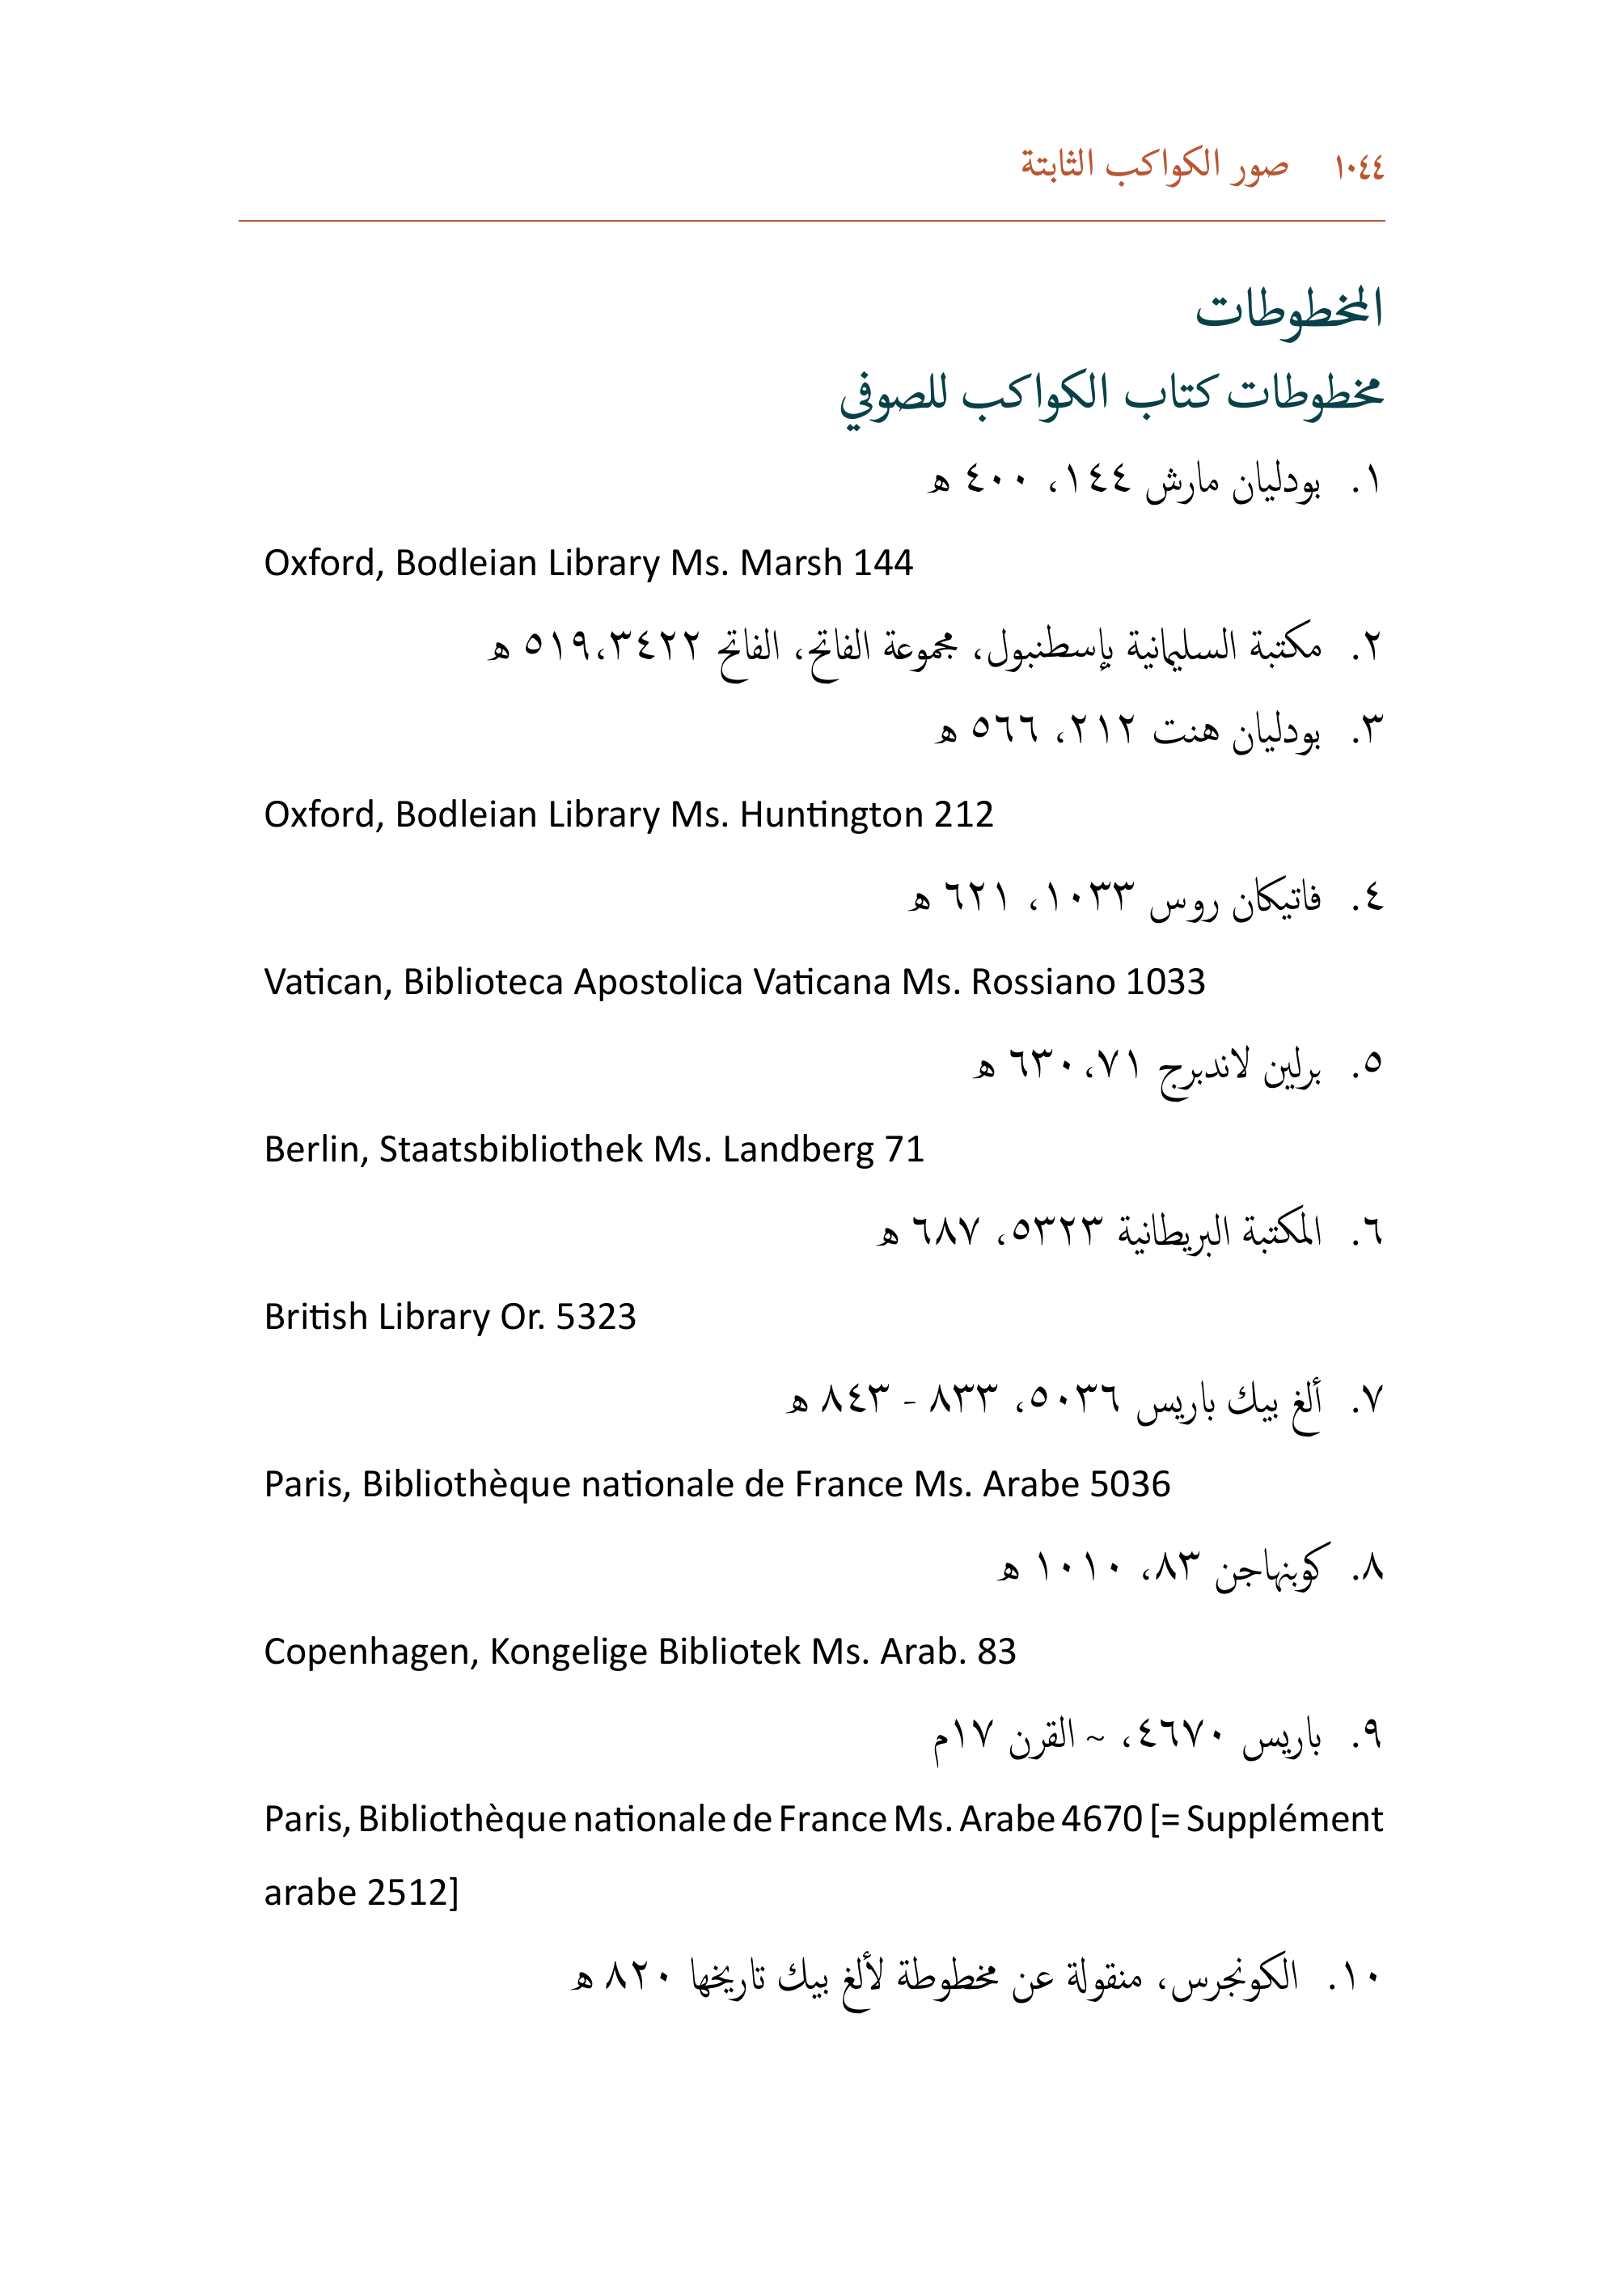 ١٠٤٤ صور الكواكب الثابتة
المخطوطات
مخطوطات كتاب الكواكب للصوفي
١. بودليان مارش ١٤٤، ٤٠٠ هـ
Oxford, Bodleian Library Ms. Marsh 144
٢. مكتبة السليمانية بإسطنبول، مجموعة الفاتح، الفاتح ٣٤٢٢،٥١٩ هـ
٣. بودليان هنت ٢١٢، ٥٦٦ هـ
Oxford, Bodleian Library Ms. Huntington 212
٤. فاتيكان روس ١٠٣٣، ٦٢١ هـ
Vatican, Biblioteca Apostolica Vaticana Ms. Rossiano 1033
٥. برلين لاندبرج ٧١،٦٣٠ هـ
Berlin, Staatsbibliothek Ms. Landberg 71
٦. المكتبة البريطانية ٥٣٢٣، ٦٨٧ هـ
British Library Or. 5323
٧. ألغ بيك باريس ٥٠٣٦، ٨٣٣ - ٨٤٣ هـ
Paris, Bibliothèque nationale de France Ms. Arabe 5036
٨. كوبنهاجن ٨٣، ١٠١٠ هـ
Copenhagen, Kongelige Bibliotek Ms. Arab. 83
٩. باريس ٤٦٧٠، ~ القرن ١٧م
Paris, Bibliothèque nationale de France Ms. Arabe 4670 [= Supplément
arabe 2512]
١٠. الكونجرس، منقولة عن مخطوطة لألغ بيك تاريخها ٨٢٠ هـ